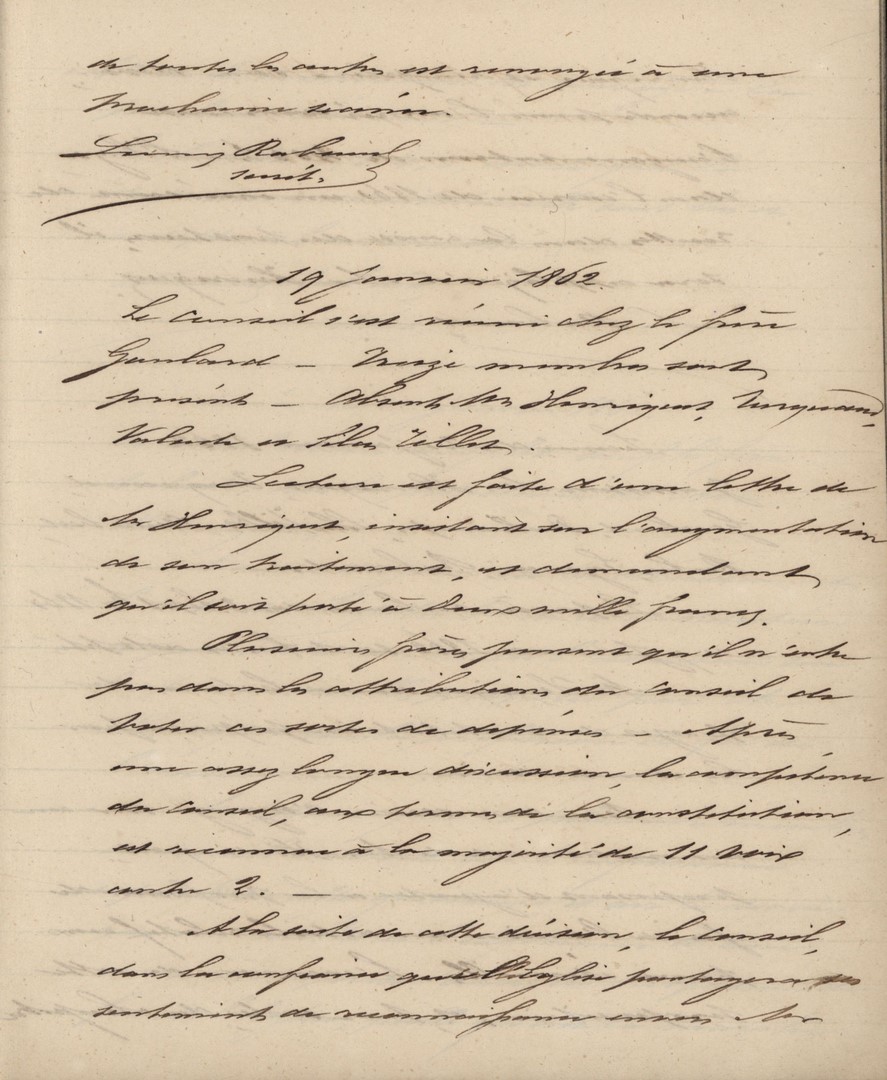 de toutes les autres est renvoyé à une
prochaine séance.
Louis Rabaud
secrét.
19 Janvier 1862.
Le Conseil s'est réuni chez le frère
Goulard — Treize membres sont
présents — Absents Mrs Henriquet,
Valade et Silas Tillet.
Lecture est faite d'une lettre de
Mr Henriquet, insistant sur l'augmentation
de son traitement, et demandant
qu'il soit porté à Deux mille francs.
Plusieurs frères pensent qu'il n'entre
pas dans les attributions du Conseil de
voter ces sortes de dépenses — Après
une assez longue discussion, la compétence
du Conseil, aux termes de la constitution,
est reconnue à la majorité de 11 voix
contre 2. —
A la suite de cette décision, le Conseil,
dans la confiance que l'Eglise partagera ses
sentiments de reconnaissance envers Mr